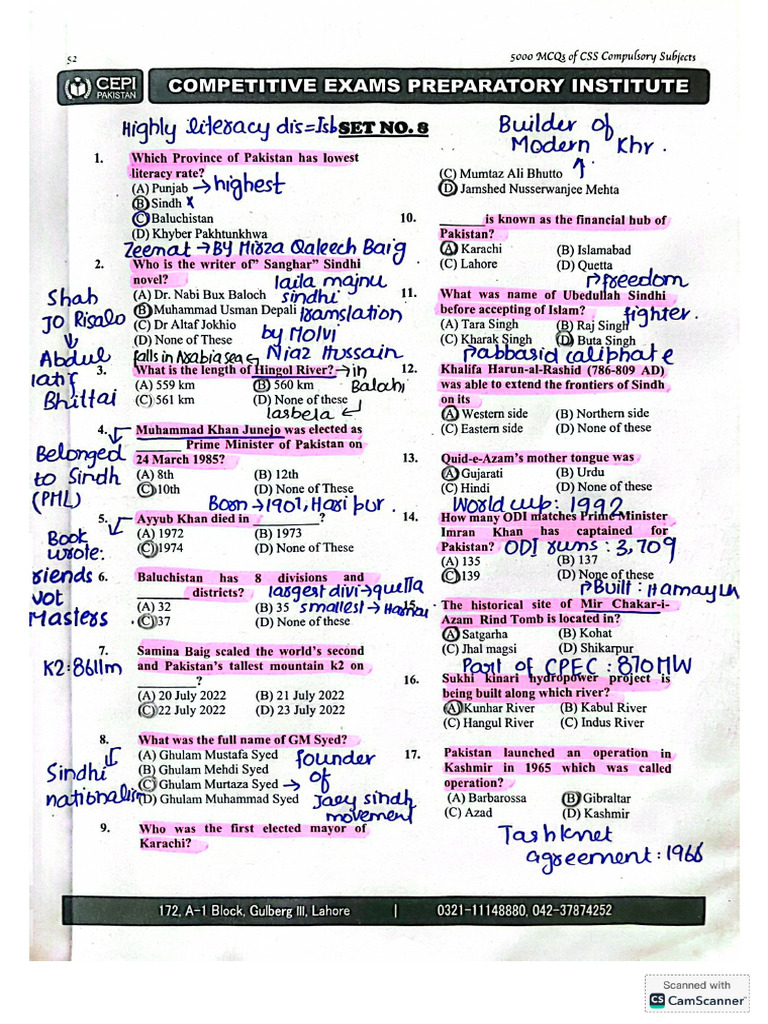 52
5000 MCQs of CSS Compulsory Subjects
CEPI
PAKISTAN
COMPETITIVE EXAMS PREPARATORY INSTITUTE
Highly literacy dis=Isb
SET NO. 8
1. Which Province of Pakistan has lowest
literacy rate?
(A) Punjab → highest
(B) Sindh x
(C) Baluchistan
(D) Khyber Pakhtunkhwa
Zeenat → BY Mirza Qaleech Baig
2. Who is the writer of" Sanghar" Sindhi
novel?
(A) Dr. Nabi Bux Baloch
(B) Muhammad Usman Depali
(C) Dr Altaf Jokhio
(D) None of These
laila majnu
sindhi
translation
by Molvi
Niaz Hussain
Shah
JO Risalo
↓
Abdul
latif
Bhittai
falls in Arabia sea
3. What is the length of Hingol River? → in
Balochi
(A) 559 km (B) 560 km
(C) 561 km (D) None of these
lasbela
4. Muhammad Khan Junejo was elected as
______ Prime Minister of Pakistan on
24 March 1985?
(A) 8th (B) 12th
(C) 10th (D) None of These
Belonged
to Sindh
(PML)
Born → 1901, Hari pur.
5. Ayyub Khan died in ________?
(A) 1972 (B) 1973
(C) 1974 (D) None of These
Book
wrote:
riends
not
Masters
6. Baluchistan has 8 divisions and
______ districts?
largest divi → quetta
(A) 32 (B) 35 smallest →
(C) 37 (D) None of these
7. Samina Baig scaled the world's second
and Pakistan's tallest mountain k2 on
________?
(A) 20 July 2022 (B) 21 July 2022
(C) 22 July 2022 (D) 23 July 2022
K2: 8611m
8. What was the full name of GM Syed?
(A) Ghulam Mustafa Syed
(B) Ghulam Mehdi Syed
(C) Ghulam Murtaza Syed →
(D) Ghulam Muhammad Syed
Sindhi
nationalism
founder
of
Jaey sindh
movement
9. Who was the first elected mayor of
Karachi?
Builder of
Modern Khr.
(C) Mumtaz Ali Bhutto
(D) Jamshed Nusserwanjee Mehta
10. ______ is known as the financial hub of
Pakistan?
(A) Karachi (B) Islamabad
(C) Lahore (D) Quetta
freedom
fighter.
11. What was name of Ubedullah Sindhi
before accepting of Islam?
(A) Tara Singh (B) Raj Singh
(C) Kharak Singh (D) Buta Singh
abbasid caliphate
12. Khalifa Harun-al-Rashid (786-809 AD)
was able to extend the frontiers of Sindh
on its
(A) Western side (B) Northern side
(C) Eastern side (D) None of these
13. Quid-e-Azam's mother tongue was
(A) Gujarati (B) Urdu
(C) Hindi (D) None of these
World cup: 1992
14. How many ODI matches Prime Minister
Imran Khan has captained for
Pakistan? ODI runs: 3,709
(A) 135 (B) 137
(C) 139 (D) None of these
Built: Hamayun
15. The historical site of Mir Chakar-i-
Azam Rind Tomb is located in?
(A) Satgarha (B) Kohat
(C) Jhal magsi (D) Shikarpur
Part of CPEC: 870 MW
16. Sukhi kinari hydropower project is
being built along which river?
(A) Kunhar River (B) Kabul River
(C) Hangul River (C) Indus River
17. Pakistan launched an operation in
Kashmir in 1965 which was called
operation?
(A) Barbarossa (B) Gibraltar
(C) Azad (D) Kashmir
Tashknet
agreement: 1966
172, A-1 Block, Gulberg III, Lahore | 0321-11148880, 042-37874252
Scanned with
CS CamScanner